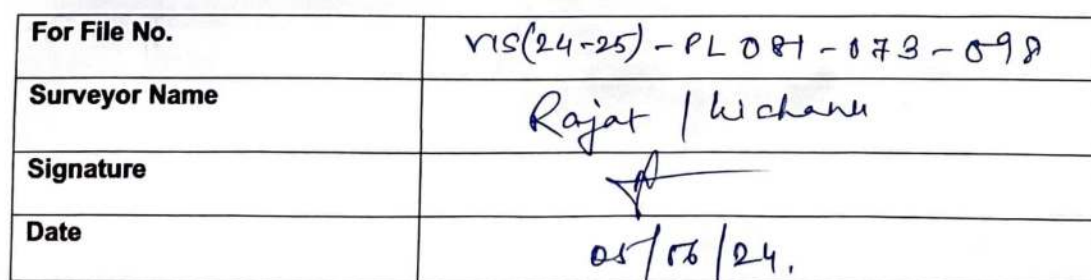 For File No. VIS(24-25) - PL 081 - 073 - 098
Surveyor Name Rajat /
Signature
Date 05/06/24.